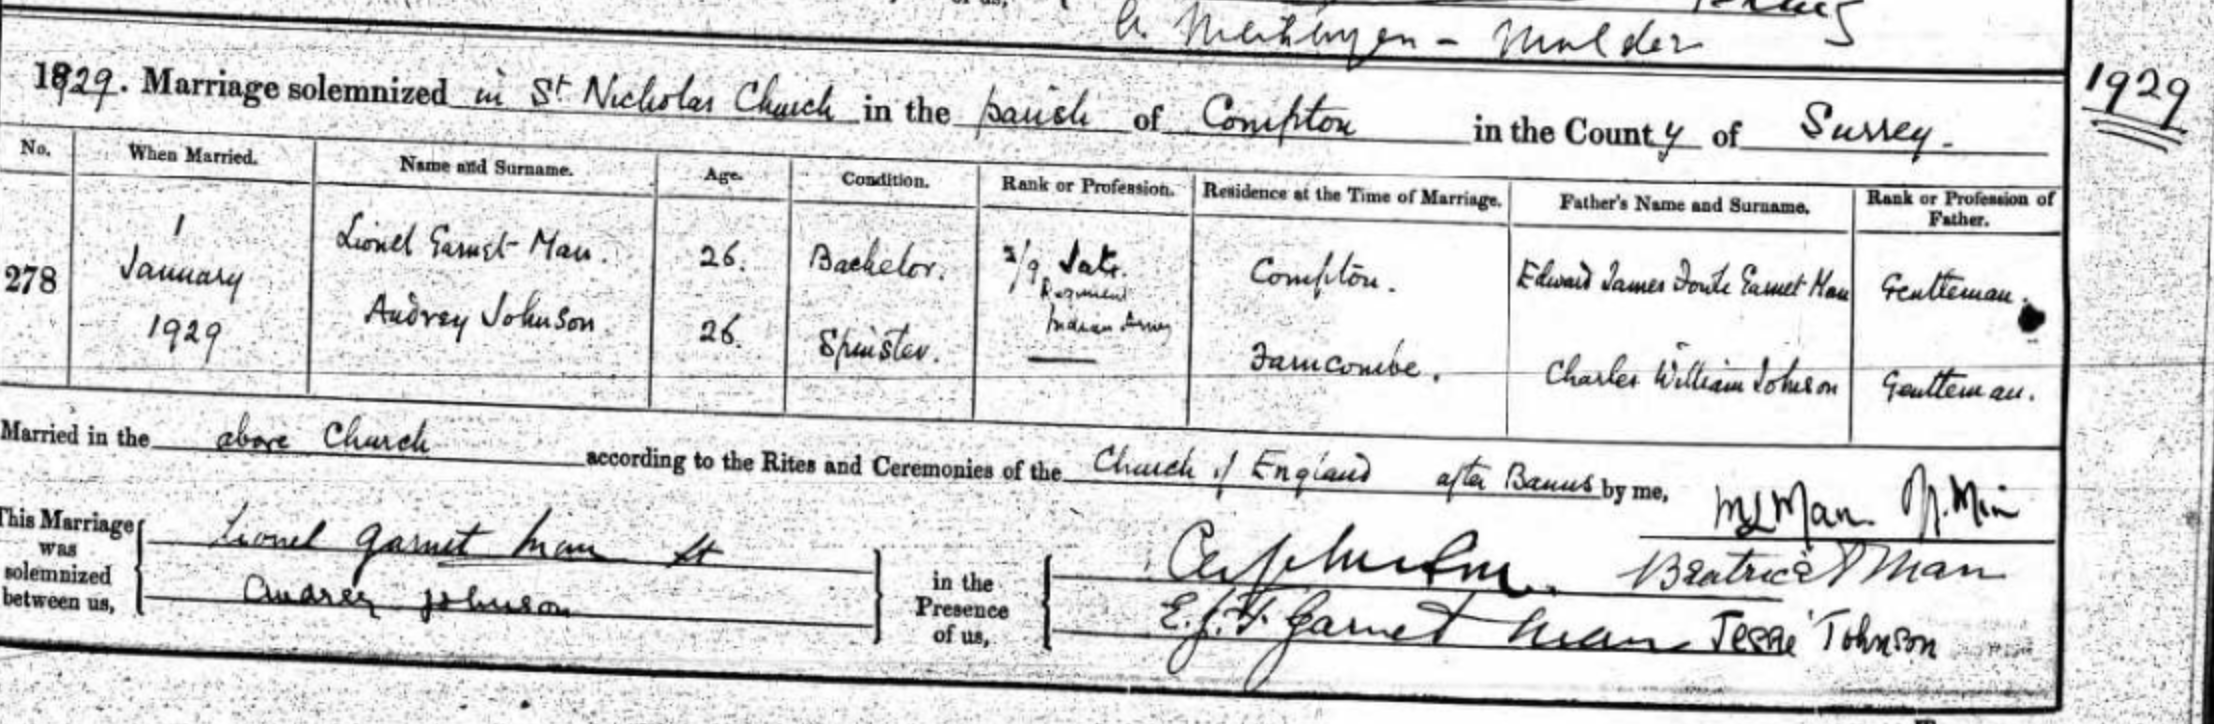 A. - Mulder
1929. Marriage solemnized in St Nicholas Church in the parish of Compton in the County of Surrey.
1929
No. When Married. Name and Surname. Age. Condition. Rank or Profession. Residence at the Time of Marriage. Father's Name and Surname. Rank or Profession of Father.
278 1 January 1929
Lionel Garnet Man. 26. Bachelor. 3/9 Jats. Regiment Indian Army Compton. Edward James Foote Garnet Man Gentleman.
Audrey Johnson 26. Spinster. — Farncombe. Charles William Johnson Gentleman.
Married in the above Church according to the Rites and Ceremonies of the Church of England after Banns by me, M L Man
This Marriage was solemnized between us,
Lionel Garnet Man Lt
Audrey Johnson
in the Presence of us,
Beatrice Man
E. J. F. Garnet Man Jessie Johnson